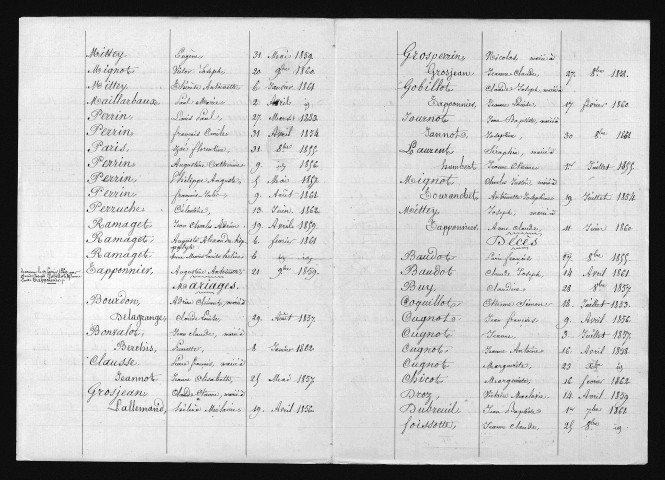 Mittey Eugène 31 Mai 1859.
Mignot Victor Joseph 20 9bre 1860.
Mittey 6 Janvier 1861
Maillarbaux Paul Marie 2 Avril id
Perrin Louis Paul, 27 Mars 1853.
Perrin François Emile 31 Avril 1854
Paris florentine 31 8bre 1855
Perrin Augustine Catherine 9 id 1856
Perrin Philippe Auguste 5 Mai 1857.
Perrin François Jules 9 Août 1861
Perruche Célestine 13 Juin 1862.
Ramaget Jean Charles Adrien 19 Avril 1859.
Ramaget Auguste 6 février 1861
Ramaget Marie Louise 6 id
Tapponnier Augustine 21 9bre 1859.
Mariages.
Bourdon, marié à
Delagrange, Claude Louise 29. Août 1857
Bonvalot Jean Claude, marié à
Berthis, 8 Janvier 1862
Clausse Pierre François, marié à
Jeannot Jeanne Elisabeth, 25 Mai 1857
Grosjean Claude Etienne, marié à
Lallemand, Mélanie 19. Avril 1856
Grosperrin Nicolas, marié à
Grosjean Jeanne Claude 27. 8bre 1858.
Gobillot Claude Joseph, marié à
Tapponnier, Jeanne Louise 17 février 1860.
Tournot Jean Baptiste, marié à
Jannot Josephine, 30 8bre 1861
Laurent Séraphin, marié à
humbert Jeanne Etienne 1er Juillet 1855
Mignot marié à
Tourandet Antoinette Josephine 19 Juillet 1854
Mittey Joseph, marié à
Tapponnier Anne Claude, 11 Juin 1860
Décès
Baudot françois 27 8bre 1855.
Baudot Claude Joseph, 14 Avril 1861
Buy Claudine 28 8bre 1857
Coquillot Etienne Simon 18 Juillet 1853.
Cugnot Jean françois 9. Avril 1856
Cugnot Jeanne, 3 Juillet 1857
Cugnot Jeanne Antoine 16 Avril 1858
Cugnot Marguerite, 23 Xbre id
Chicot Marguerite 16 février 1862
Droz 14 Avril 1859
Dubreuil Jean Baptiste 1er 7bre 1861
foissotte, Jeanne Claude, 25 8bre id